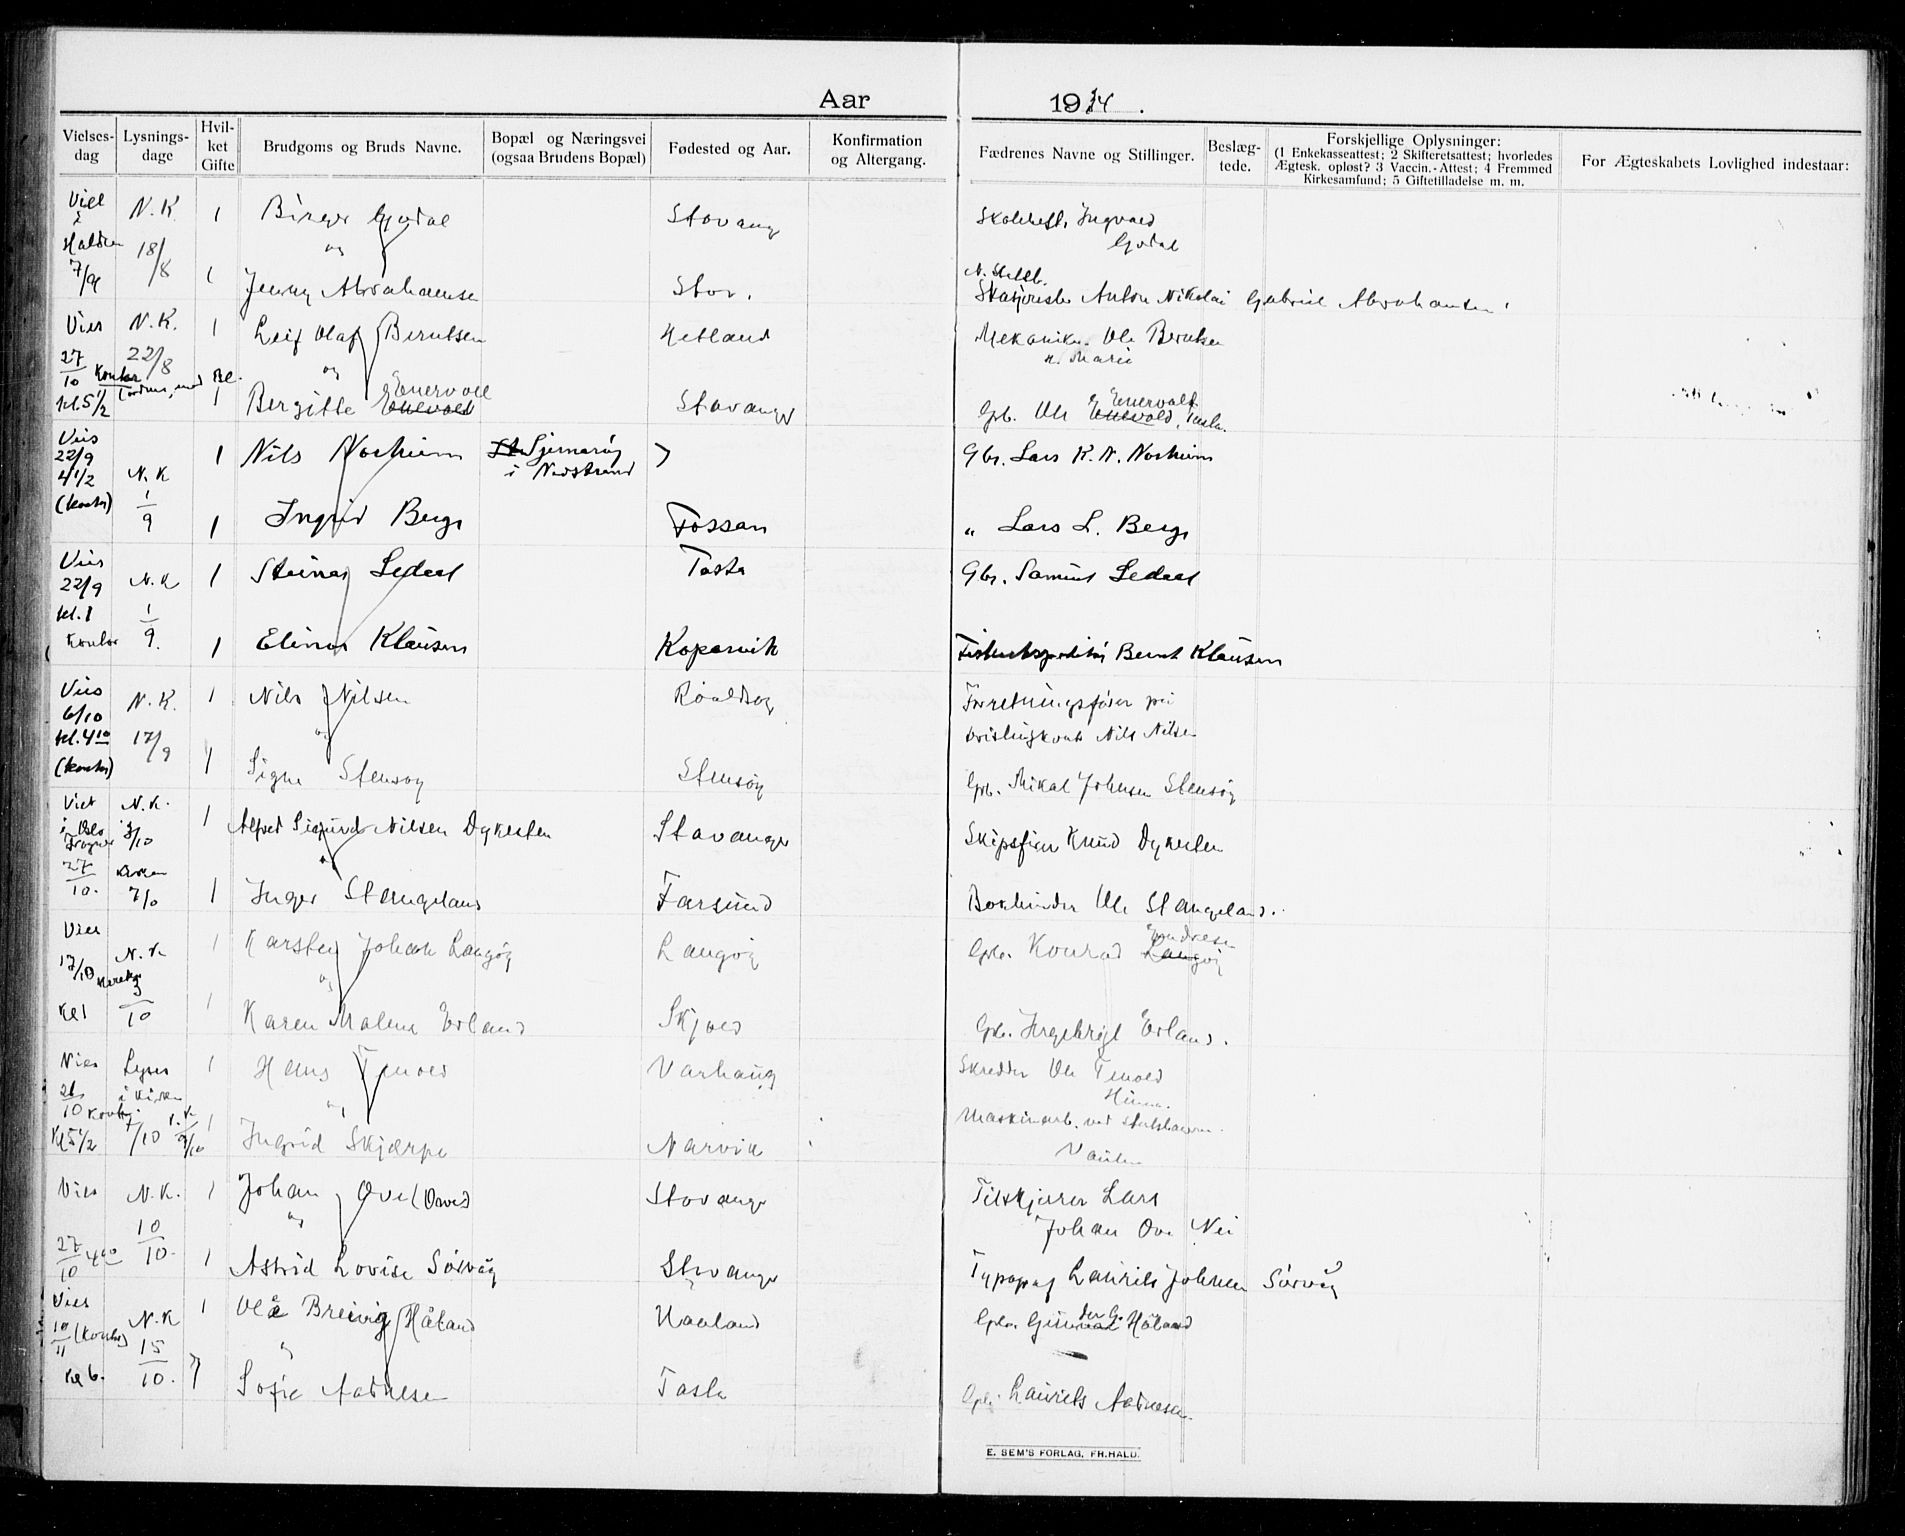 Aar 1934.
Vielses-dag
Lysnings-dage
Hvil-ket Gifte
Brudgoms og Bruds Navne.
Bopæl og Næringsvei (ogsaa Brudens Bopæl)
Fødested og Aar.
Konfirmation og Altergang.
Fædrenes Navne og Stillinger.
Beslæg-tede.
Forskjellige Oplysninger:
(1 Enkekasseattest; 2 Skifteretsattest; hvorledes
Ægtesk. opløst? 3 Vaccin.-Attest; 4 Fremmed
Kirkesamfund; 5 Giftetilladelse m. m.
For Ægteskabets Lovlighed indestaar:
Viet i Halden 7/9 N.K. 18/8 1 Birger Godal Stavang Ingvald Godal
og
1 Jenny Abrahamsen Stav. Anton Nikolai Gabriel Abrahamsen
Vies N.K. 1 Leif Olaf Berntsen Hetland Mekaniker Ole Berntsen
27/10 22/8 og n. Marie
kl. 5 1/2 1 Bergitte Enervold Stavanger Gbr. Ole Enervold, Tasta
Vies 22/9 4 1/2 1 Nils Norheim Sjernarøy i Nedstrand Gbr. Lars K. N. Norheim
(kontor) N.K 1/9 1 Ingrid Berge Fossan " Lars L. Berge
Vies 22/9 N.K 1 Steinar Ledaal Tasta Gbr. Samuel Ledaal
kl. 1 kontor 1/9. 1 Elinor Klausen Kopervik Bernt Klausen
Vies 6/10 N.K. 1 Nils Nilsen Røaldsøy Forretningsfører på
kl. 4 10 17/9 og brislingkont. Nils Nilsen
(kontor) 1 Signe Stensøy Stensøy Gbr. Mikal Johnsen Stensøy
Viet i Oslo N.K. 1 Alfred Sigurd Nilsen Dykesten Stavanger Skipsfører Knud Dykesten
27/10. 7/10 1 Inger Stangeland Farsund Bokbinder Ole Stangeland.
Vies 17/10 N.K 1 Karsten Johan Langøy Langøy Gbr. Konrad Endresen Langøy
og
Kl 1 3/10 1 Karen Malene Erland Skjold Gbr. Ingebrigt Erland.
Vies Lyses 1 Hans Tenold Varhaug Skredder Ole Tenold
26/10 i kirken og Hinna.
Kl 5 1/2 7/10 1 Ingrid Skjærpe Narvik Maskinarb. ved
Vaulen
Vies N.K. 1 Johan Ove (Oved) Stavanger Tilskjærer Lars
og Johan Ove Nei
27/10 4 00 10/10. 1 Astrid Lovise Sørvåg Stavanger Typograf Laurits Johnsen Sørvåg
Vies N.K 1 Ole Breivig Håland Haaland Gbr. Gunnar der G. Håland
10/11 (kontor) 15/10. og
kl 6. 1 Sofie Aadnesen Tasta Gbr. Laurits Aadnesen
E. SEM'S FORLAG, FR.HALD.